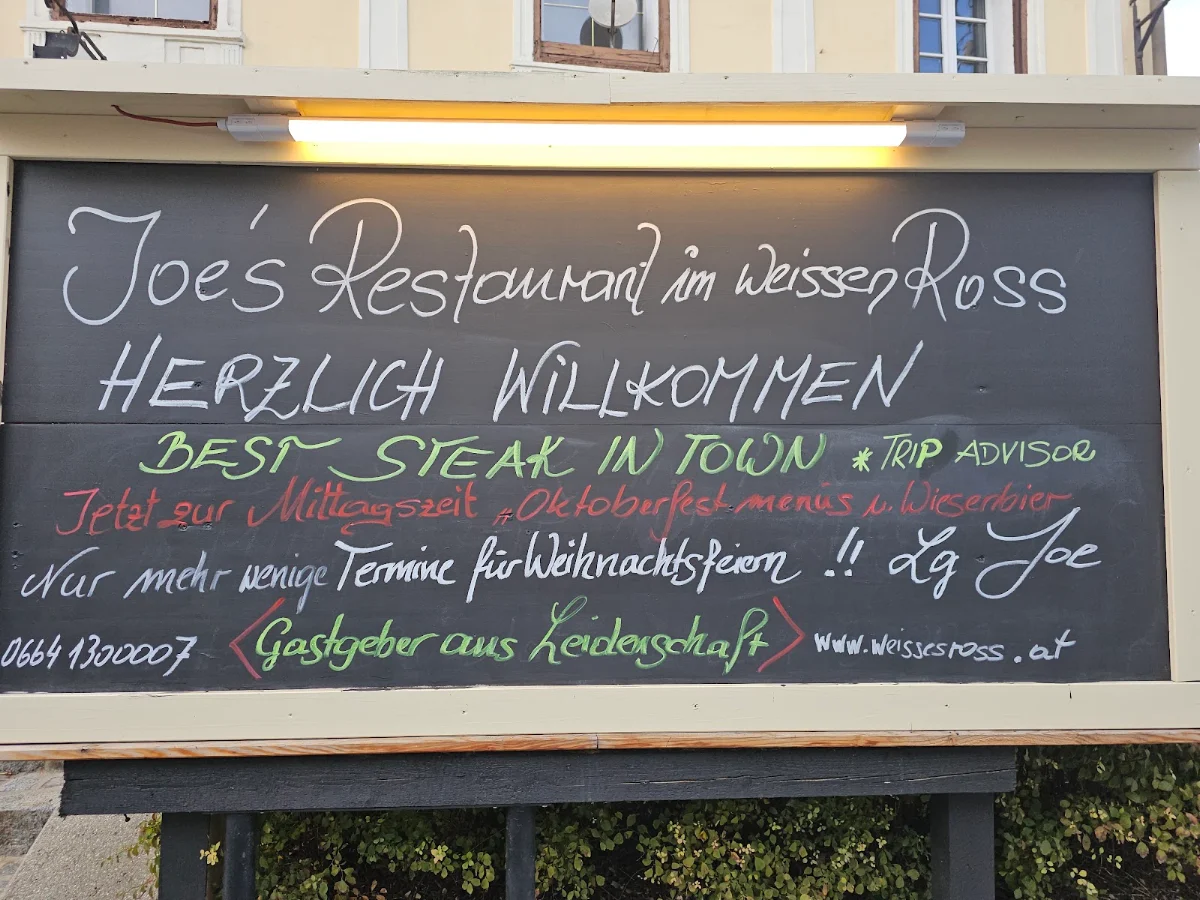 Joe's Restaurant im weissen Ross
HERZLICH WILLKOMMEN
BEST STEAK IN TOWN * TRIP ADVISOR
Jetzt zur Mittagszeit „Oktoberfest menüs u. Wieserbier
Nur mehr wenige Termine für Weihnachtsfeiern !! Lg Joe
0664 1300007 <Gastgeber aus Leidenschaft> www.weissesross.at